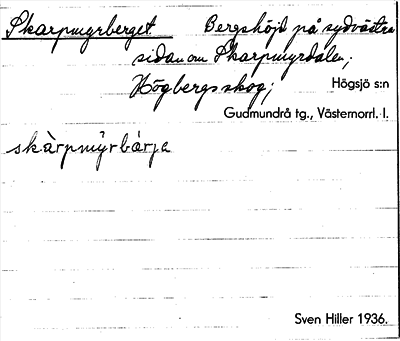 Skarpmyrberget Bergshöjd på sydvästra
sidan om Skarpmyrdalen;
Högbergs skog; Högsjö s:n
Gudmundrå tg., Västernorrl. l.
skàrpmy̆rbàrja
Sven Hiller 1936.